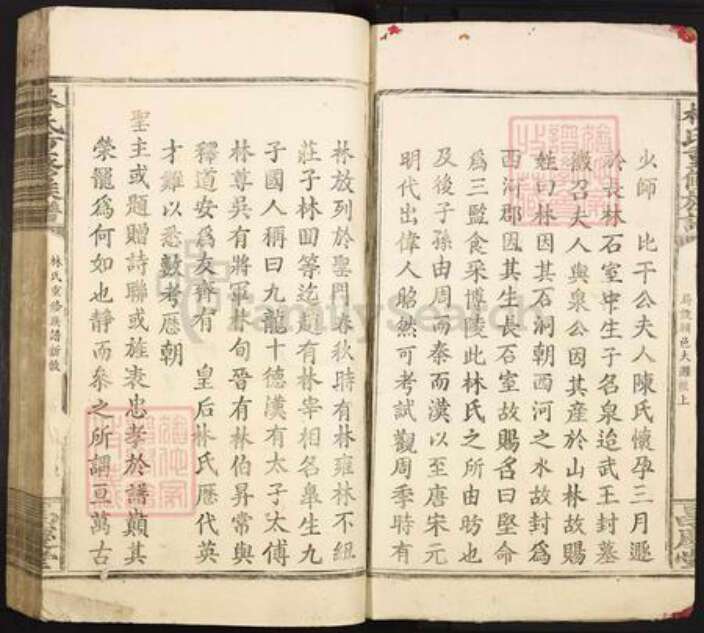 少師 比干公夫人陳氏懷孕三月遯
於長林石室中生子名泉迨武王封墓
徵召夫人與泉公因其產於山林故賜
姓曰林因其石澗朝西河之水故封爲
西河郡因其生長石室故賜名曰堅命
爲三監食采博陵此林氏之所由昉也
及後子孫由周而秦而漢以至唐宋元
明代出偉人昭然可考試觀周季時有
林放列於聖門春秋時有林雍林不紐
莊子林回等迄趙有林宰相名皋生九
子國人稱曰九龍十德漢有太子太傅
林尊吳有將軍林恂晉有林伯昇常與
釋道安爲友齊有 皇后林氏歷代英
才難以悉數考歷朝
聖主或題贈詩聯或旌表忠孝於譜巔其
榮寵爲何如也靜而叅之所謂亘萬古
林氏重修族譜
林氏重修族譜新敘
FamilySearch